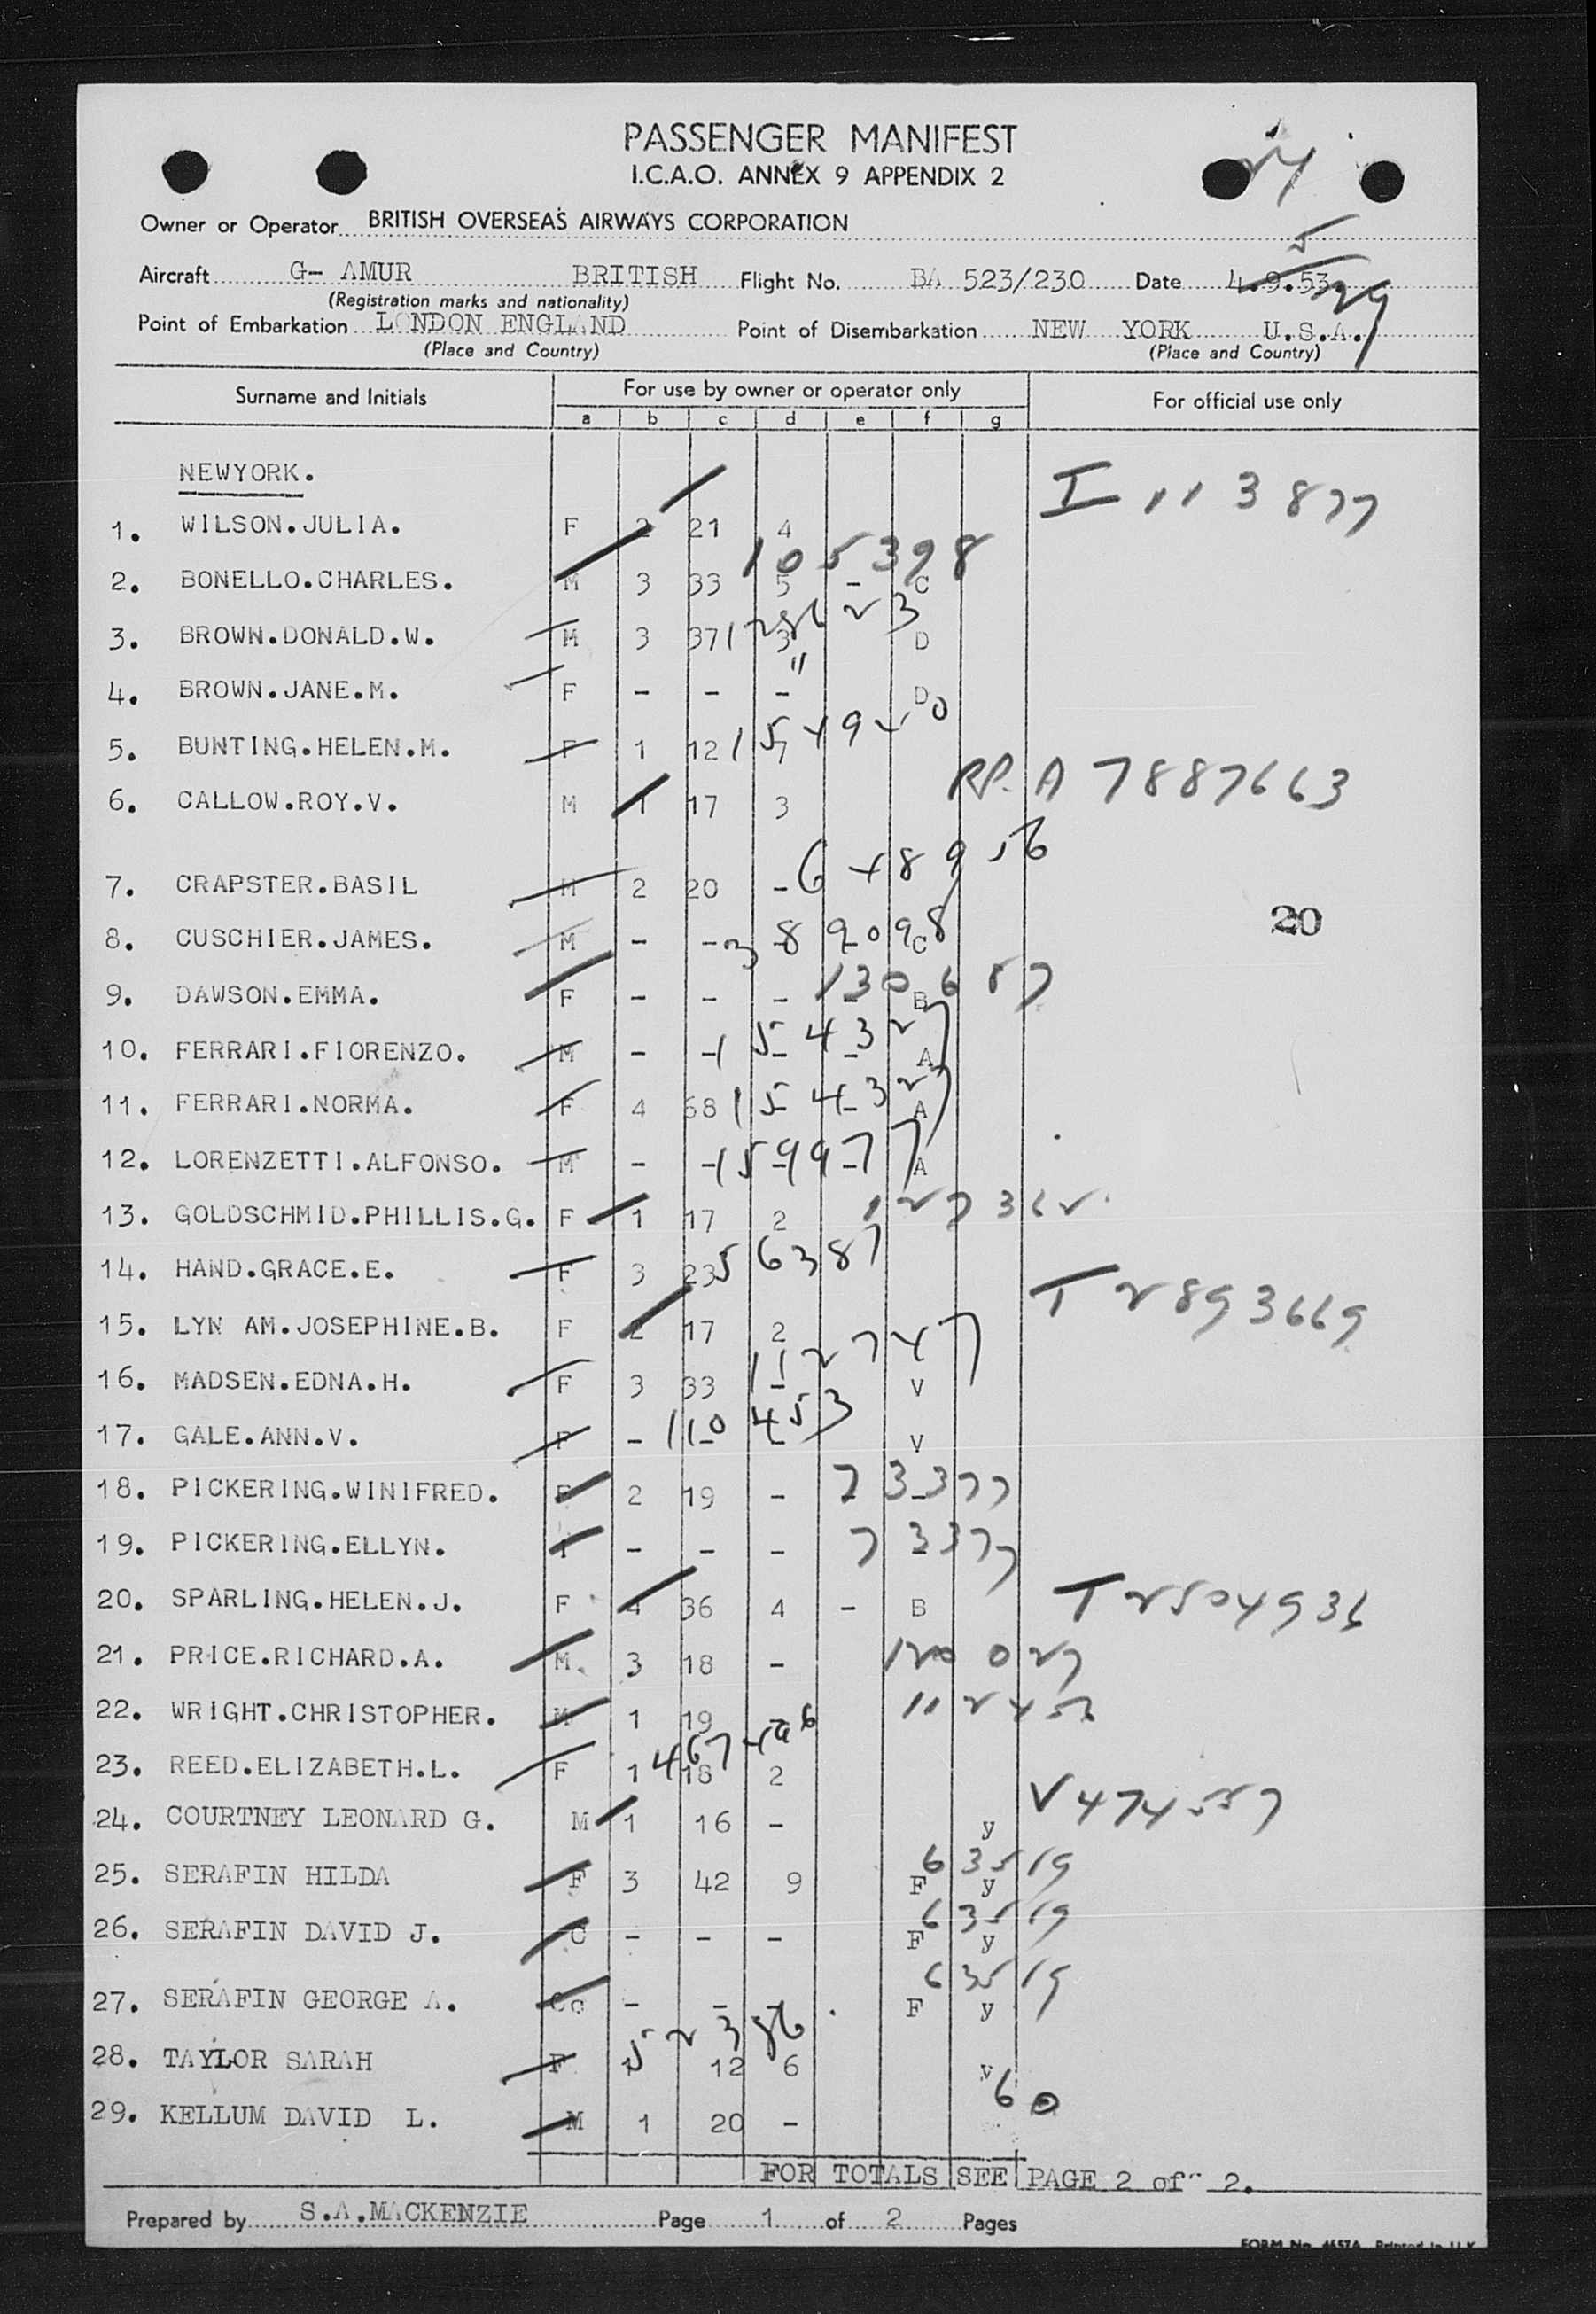 PASSENGER MANIFEST
I.C.A.O. ANNEX 9 APPENDIX 2
Owner or Operator BRITISH OVERSEAS AIRWAYS CORPORATION
5
Aircraft G- AMUR BRITISH Flight No. BA 523/230 Date 4.9.53.
(Registration marks and nationality)
Point of Embarkation LONDON ENGLAND Point of Disembarkation NEW YORK U.S.A.
(Place and Country) (Place and Country)
Surname and Initials For use by owner or operator only For official use only
a b c d e f g
NEWYORK.
I 113877
1. WILSON.JULIA. F 2 21 4
105398
2. BONELLO.CHARLES. M 3 33 5 - C
3. BROWN.DONALD.W. M 3 37 3 D
"
4. BROWN.JANE.M. F - - - D
5. BUNTING.HELEN.M. F 1 12 7
A 7887663
6. CALLOW.ROY.V. M 1 17 3
648956
7. CRAPSTER.BASIL M 2 20 -
20
389098
8. CUSCHIER.JAMES. M - - - - C
130687
9. DAWSON.EMMA. F - - - - B
154327
10. FERRARI.FIORENZO. M - - - - A
154327
11. FERRARI.NORMA. F 4 68 - - A
159977
12. LORENZETTI.ALFONSO. M - - - - A
13. GOLDSCHMID.PHILLIS.G. F 1 17 2
56387
14. HAND.GRACE.E. F 3 23
T 2893669
15. LYN AM.JOSEPHINE.B. F 2 17 2
112747
16. MADSEN.EDNA.H. F 3 33 - V
110453
17. GALE.ANN.V. F - - - V
73377
18. PICKERING.WINIFRED. F 2 19 - - -
73377
19. PICKERING.ELLYN. F - - - -
T 2504936
20. SPARLING.HELEN.J. F 4 36 4 - B
120027
21. PRICE.RICHARD.A. M. 3 18 -
22. WRIGHT.CHRISTOPHER. M 1 19 -
467446
23. REED.ELIZABETH.L. F 1 18 2
V 474557
24. COURTNEY LEONARD G. M 1 16 - y
63519
25. SERAFIN HILDA F 3 42 9 F y
63519
26. SERAFIN DAVID J. C - - - F y
63519
27. SERAFIN GEORGE A. - - - F y
52386
28. TAYLOR SARAH F 12 6
60
29. KELLUM DAVID L. M 1 20 -
FOR TOTALS SEE PAGE 2 of 2.
Prepared by S.A.MACKENZIE Page 1 of 2 Pages
FORM No. 4657A Printed in U.K